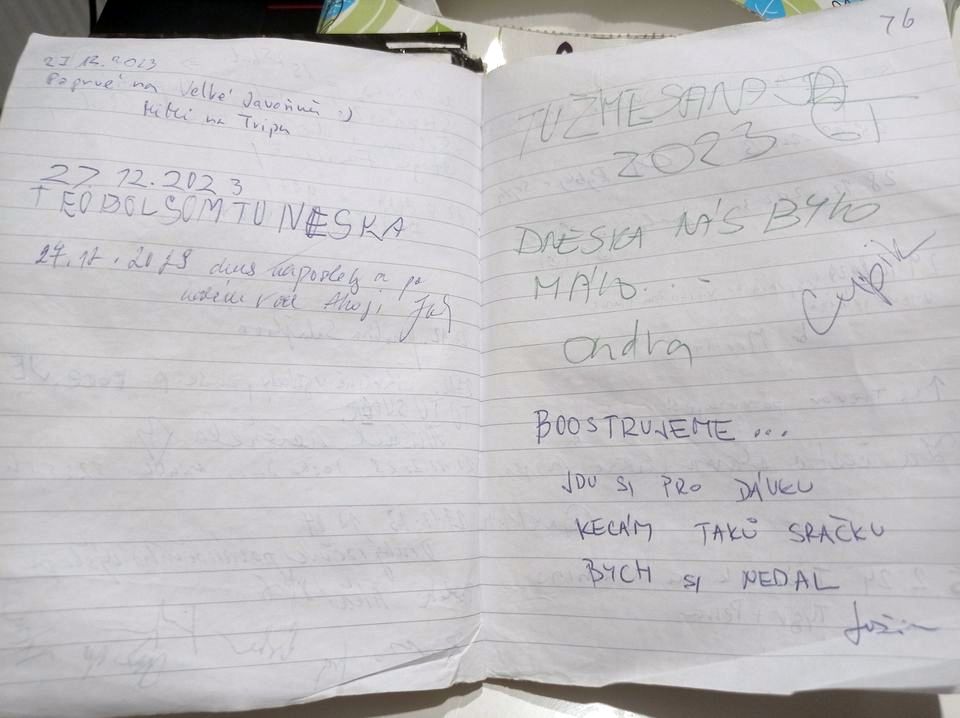 27.12.2023
Poprvé na Velké Javořině :)
Miki na Tripu
27.12.2023
TEODOL SOM TU NESKA
27.12.2023 dnes naposledy a po
vode Ahoj
76
TUŽME SA NA
2023
DNESKA NÁS BYLO
MÁLO...
Ondra
BOOSTRUJEME ...
JDU SI PRO DÁVKU
KECÁM TAKŮ SRAČKU
BYCH SI NEDAL